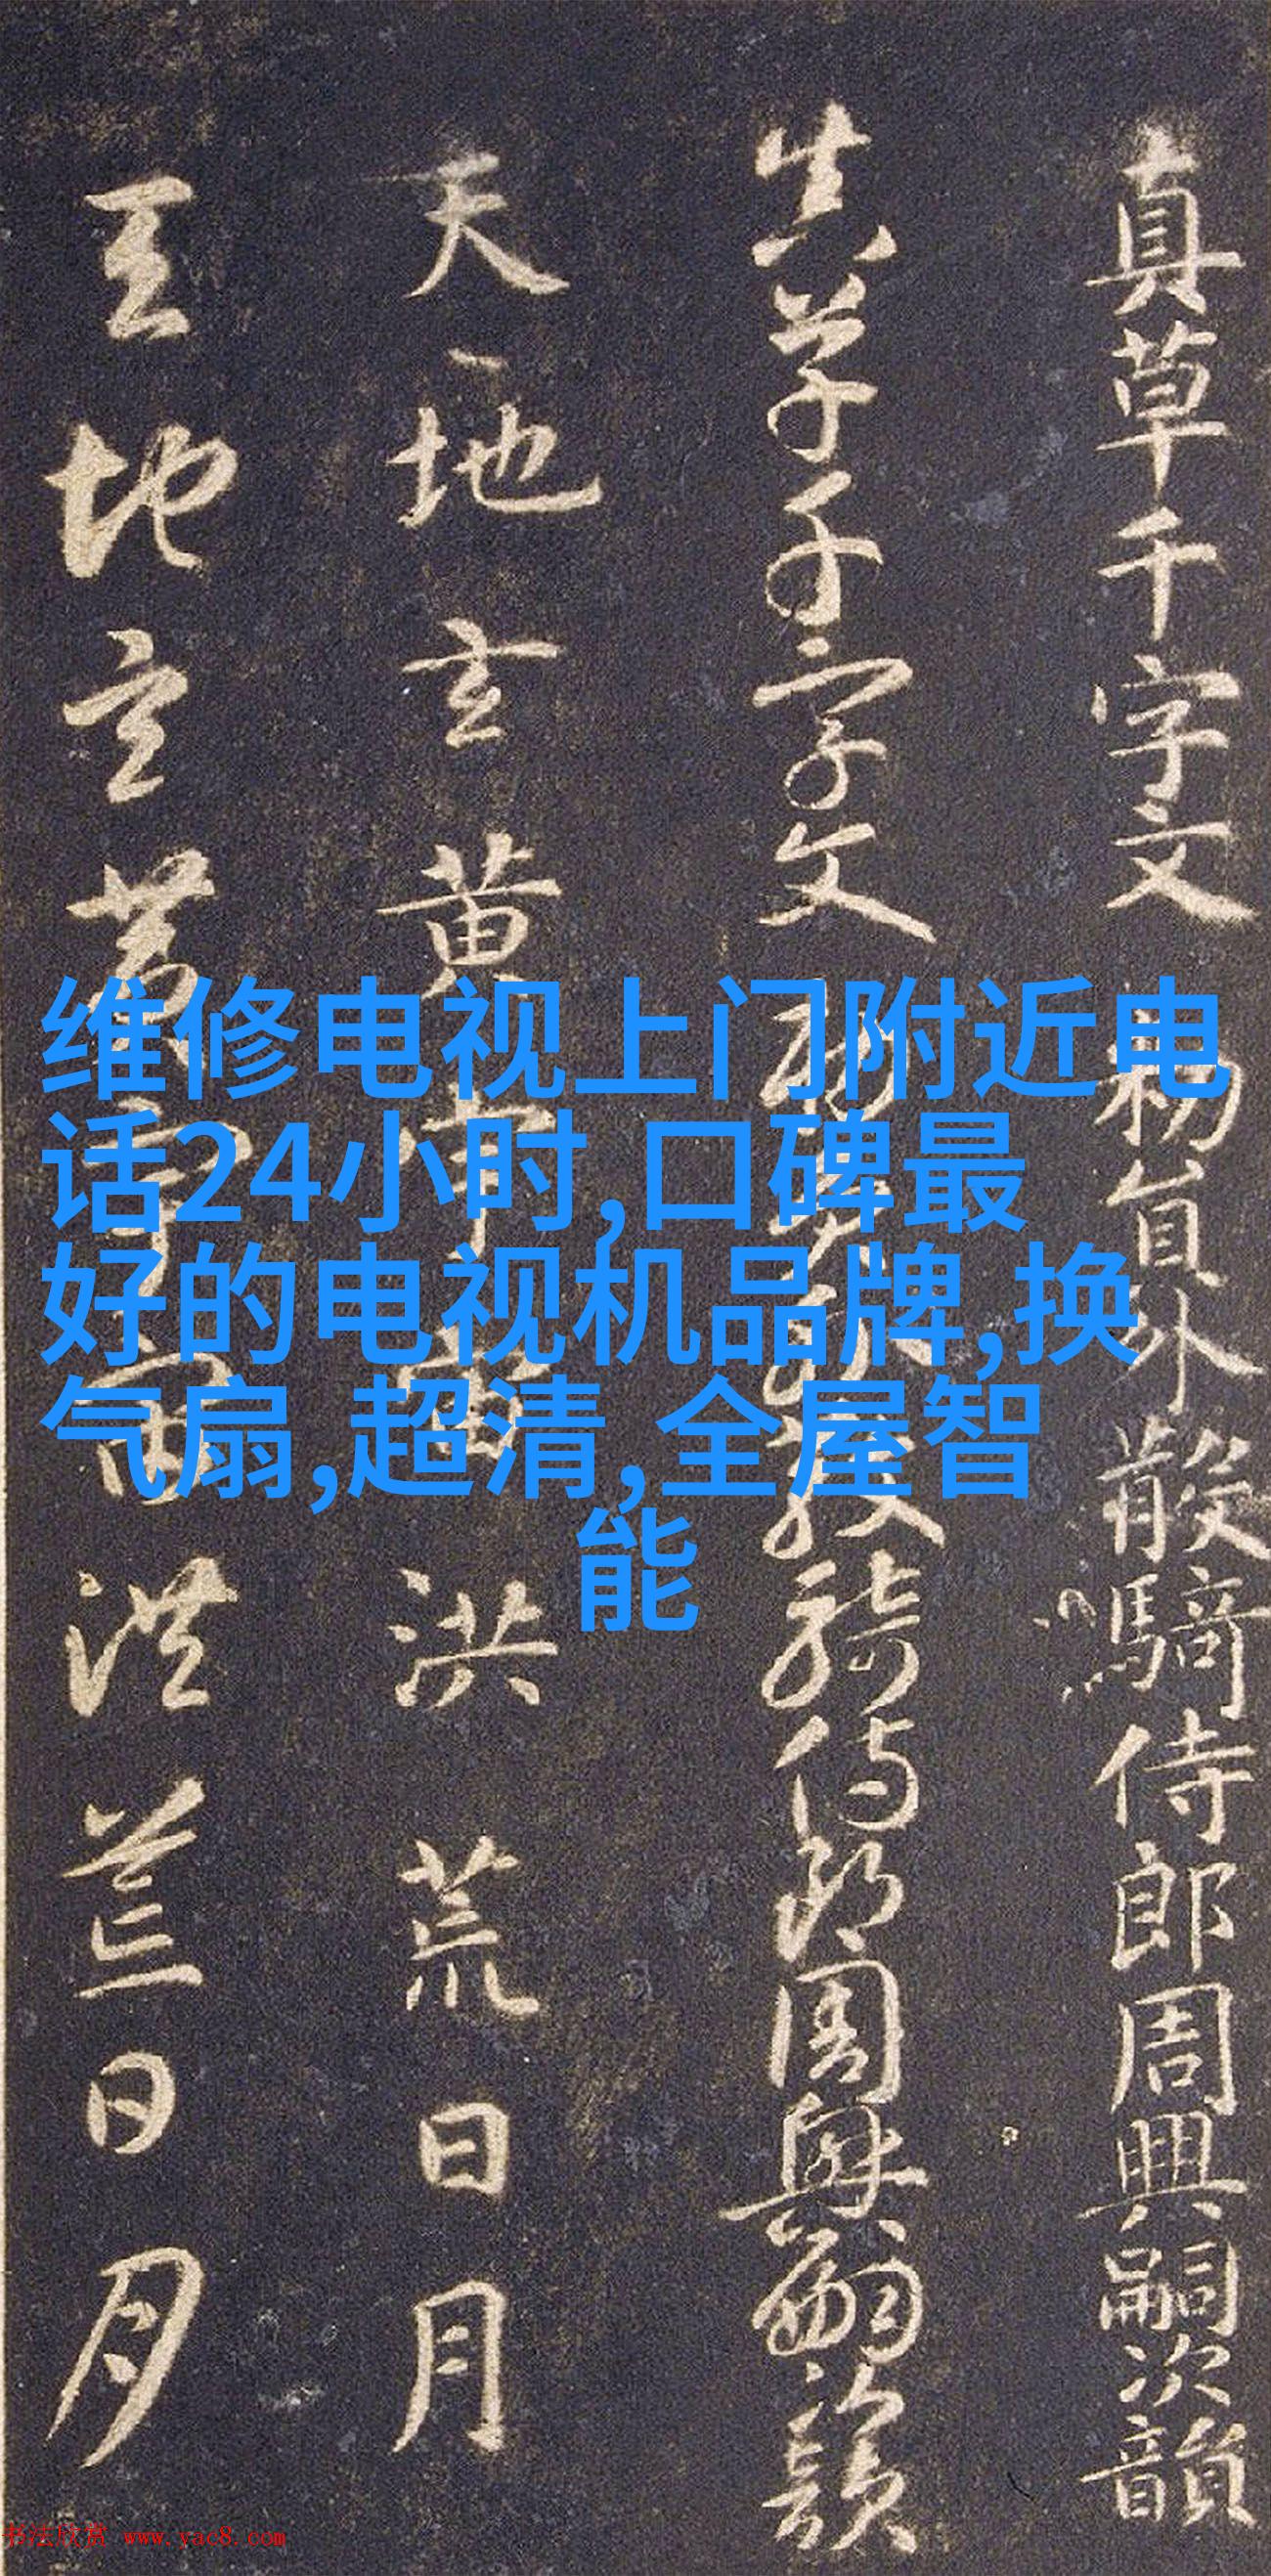 真草千字文 敕員外散騎侍郎周興嗣次韻
真草千字文 敕員外散騎侍郎周興嗣次韻
天地玄黃宇宙洪荒日月
天地玄黃宇宙洪荒日月
维修电视上门附近电
话24小时,口碑最
好的电视机品牌,换
气扇,超清,全屋智
能
书法欣赏 www.yac8.com